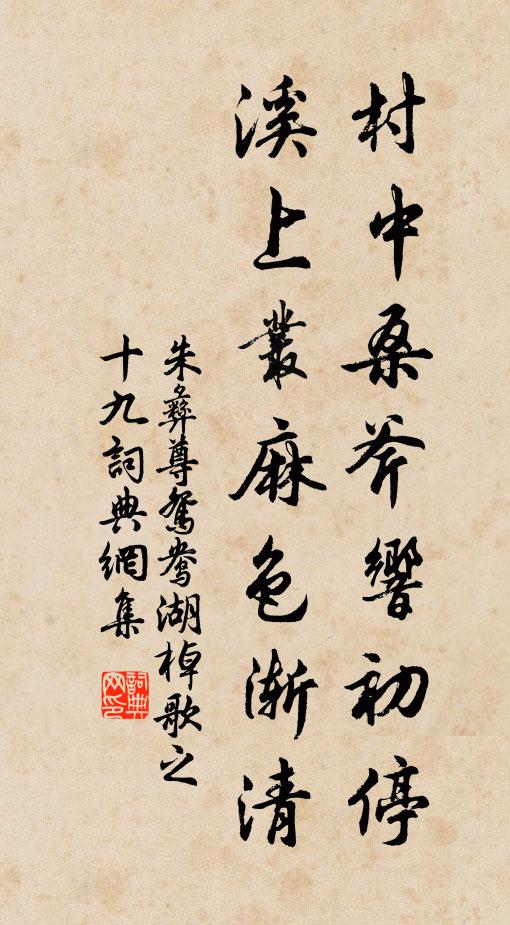 村中桑斧響初停
溪上叢麻色漸清
朱彝尊鴛鴦湖棹歌之
十九詞典網集
詞典網印